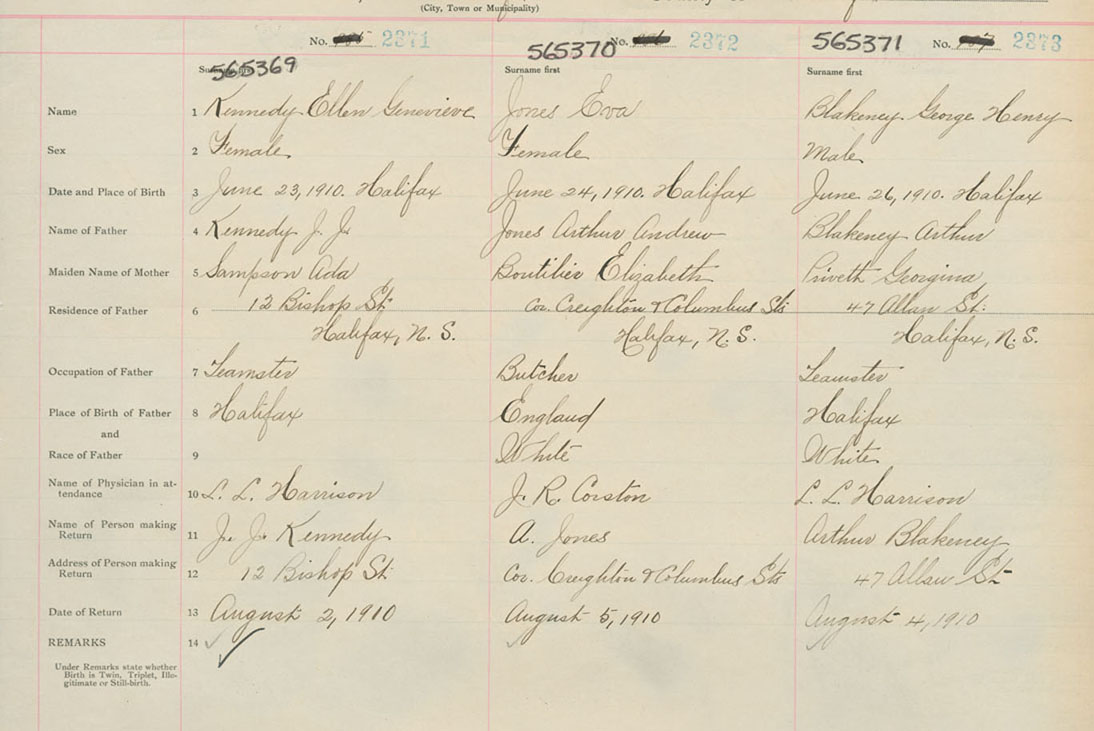 (City, Town or Municipality)
No. 2371 No. 2372 No. 2373
565369 565370 565371
Surname first Surname first Surname first
Name 1 Kennedy Ellen Genevieve Jones Eva Blakeney George Henry
Sex 2 Female Female Male
Date and Place of Birth 3 June 23, 1910. Halifax June 24, 1910. Halifax June 26, 1910. Halifax
Name of Father 4 Kennedy J. J. Jones Arthur Andrew Blakeney Arthur
Maiden Name of Mother 5 Sampson Ada Boutilier Elizabeth Priveth Georgina
Residence of Father 6 12 Bishop St. cor. Creighton & Columbus Sts 47 Allan St.
Halifax, N. S. Halifax, N. S. Halifax, N. S.
Occupation of Father 7 Teamster Butcher Teamster
Place of Birth of Father 8 Halifax England Halifax
and
Race of Father 9 White White
Name of Physician in at- 10 L. L. Harrison J. R. Corston L. L. Harrison
tendance
Name of Person making 11 J. J. Kennedy A. Jones Arthur Blakeney
Return
Address of Person making 12 12 Bishop St. Cor. Creighton & Columbus Sts 47 Allan St.
Return
Date of Return 13 August 2, 1910 August 5, 1910 August 4, 1910
REMARKS 14
Under Remarks state whether
Birth is Twin, Triplet, Ille-
gitimate or Still-birth.